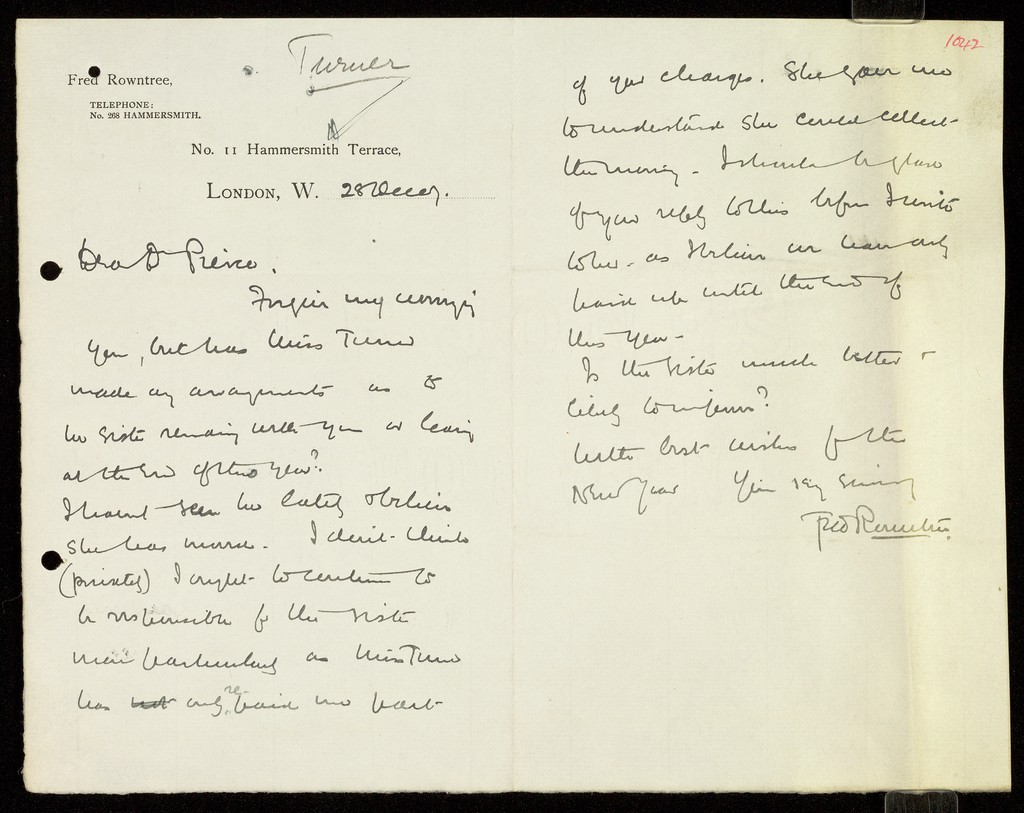 Turner
Fred Rowntree,
TELEPHONE:
No. 268 HAMMERSMITH.
No. 11 Hammersmith Terrace,
LONDON, W. 28 Dec
Dear Dr Pierce.
Forgive my worrying
you, but has Miss Turner
made any arrangements as to
her sister remaing with you or leaving
at the end of this year?
I havent seen her lately I believe
she has moved. I dont think
(privately) I ought to continue to
be responsible for the sister
more particularly as Miss Turner
has not only repaid me part
1042
of your charges. She gave me
to understand she could collect
the money. I should be glad
of your reply to this before I write
to her. as I believe we have only
paid up until the end of
this year -
Is the sister much better &
likely to improve?
With best wishes for the
New Year Yours very sincerely
Fred Rowntree.